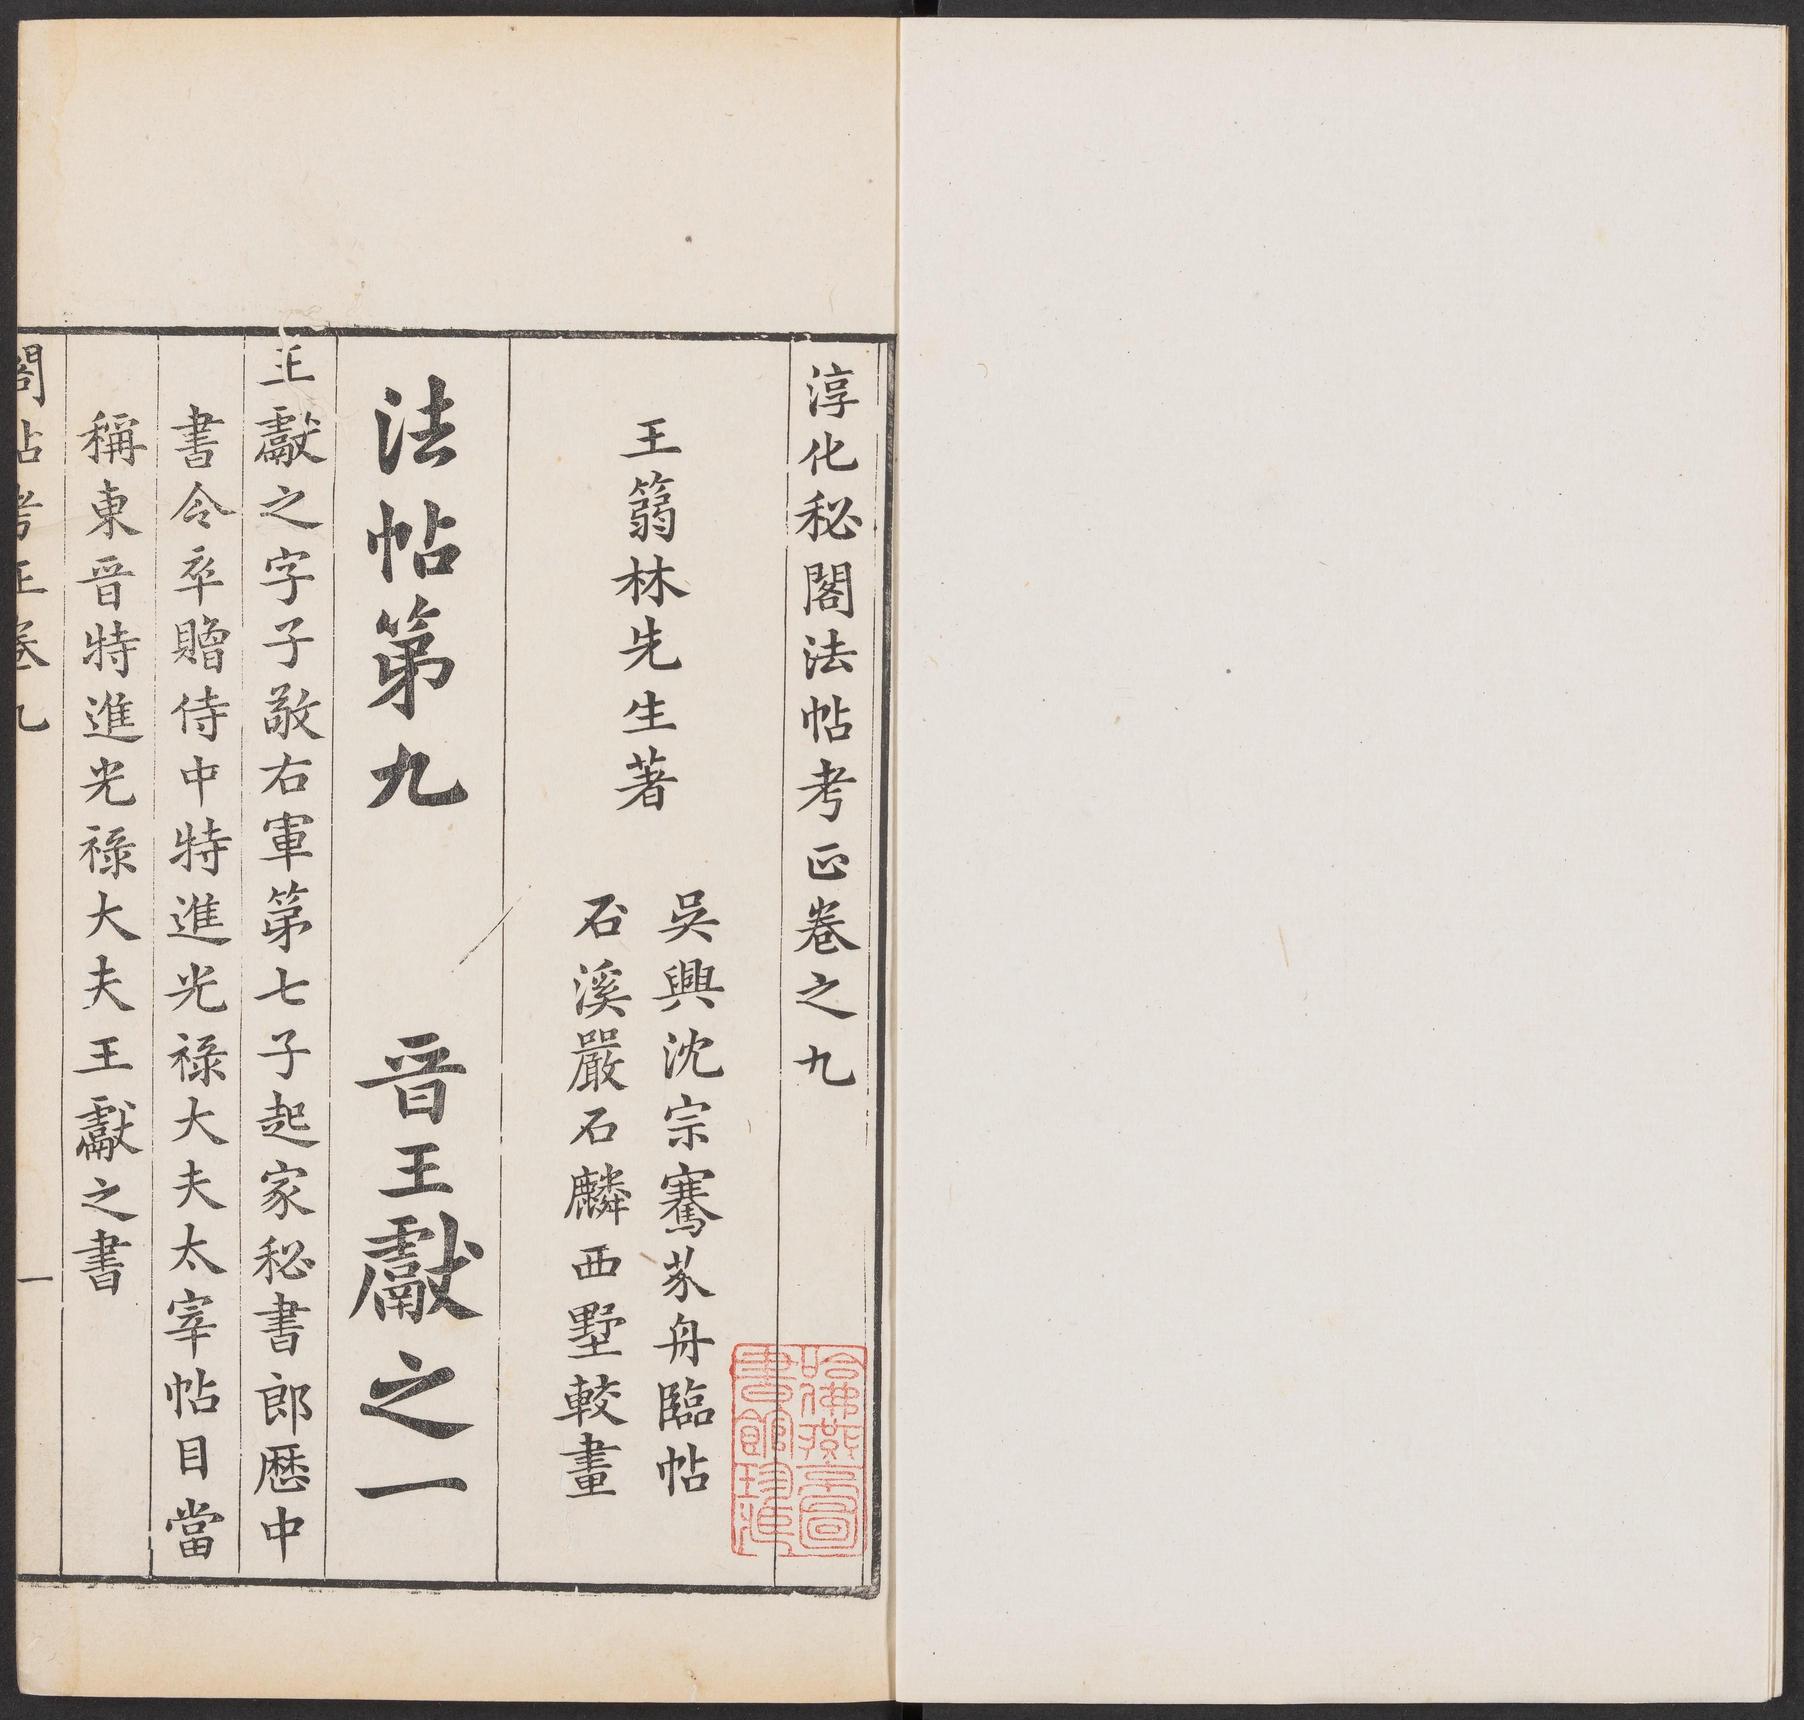 淳化秘閣法帖考正卷之九
王蒻林先生著
吳興沈宗騫芥舟臨帖
石溪嚴石麟西墅較畫
法帖第九 晉王獻之一
王獻之字子敬右軍第七子起家秘書郎歷中
書令卒贈侍中特進光祿大夫太宰帖目當
稱東晉特進光祿大夫王獻之書
閣帖考正卷九
一
哈佛燕京圖
書館珍藏